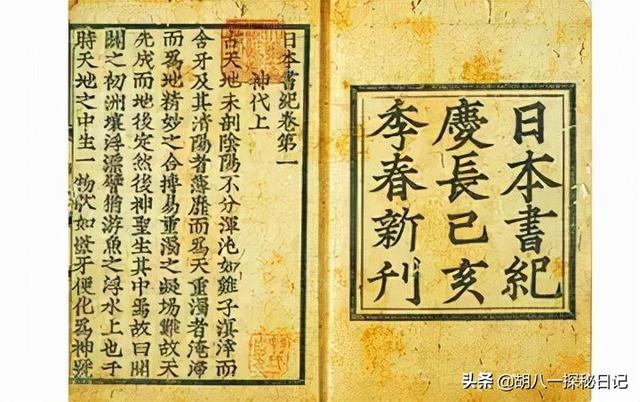 日本書紀
慶長己亥
季春新刊
日本書紀卷第一
神代上
古天地未剖陰陽不分渾沌如雞子溟涬而
含牙及其清陽者薄靡而爲天重濁者淹滯
而爲地精妙之合搏易重濁之凝場難故天
先成而地後定然後神聖生其中焉故曰開
闢之初洲壤浮漂譬猶游魚之浮水上也于
時天地之中生一物狀如葦牙便化爲神號
头条 @胡八一探秘日记